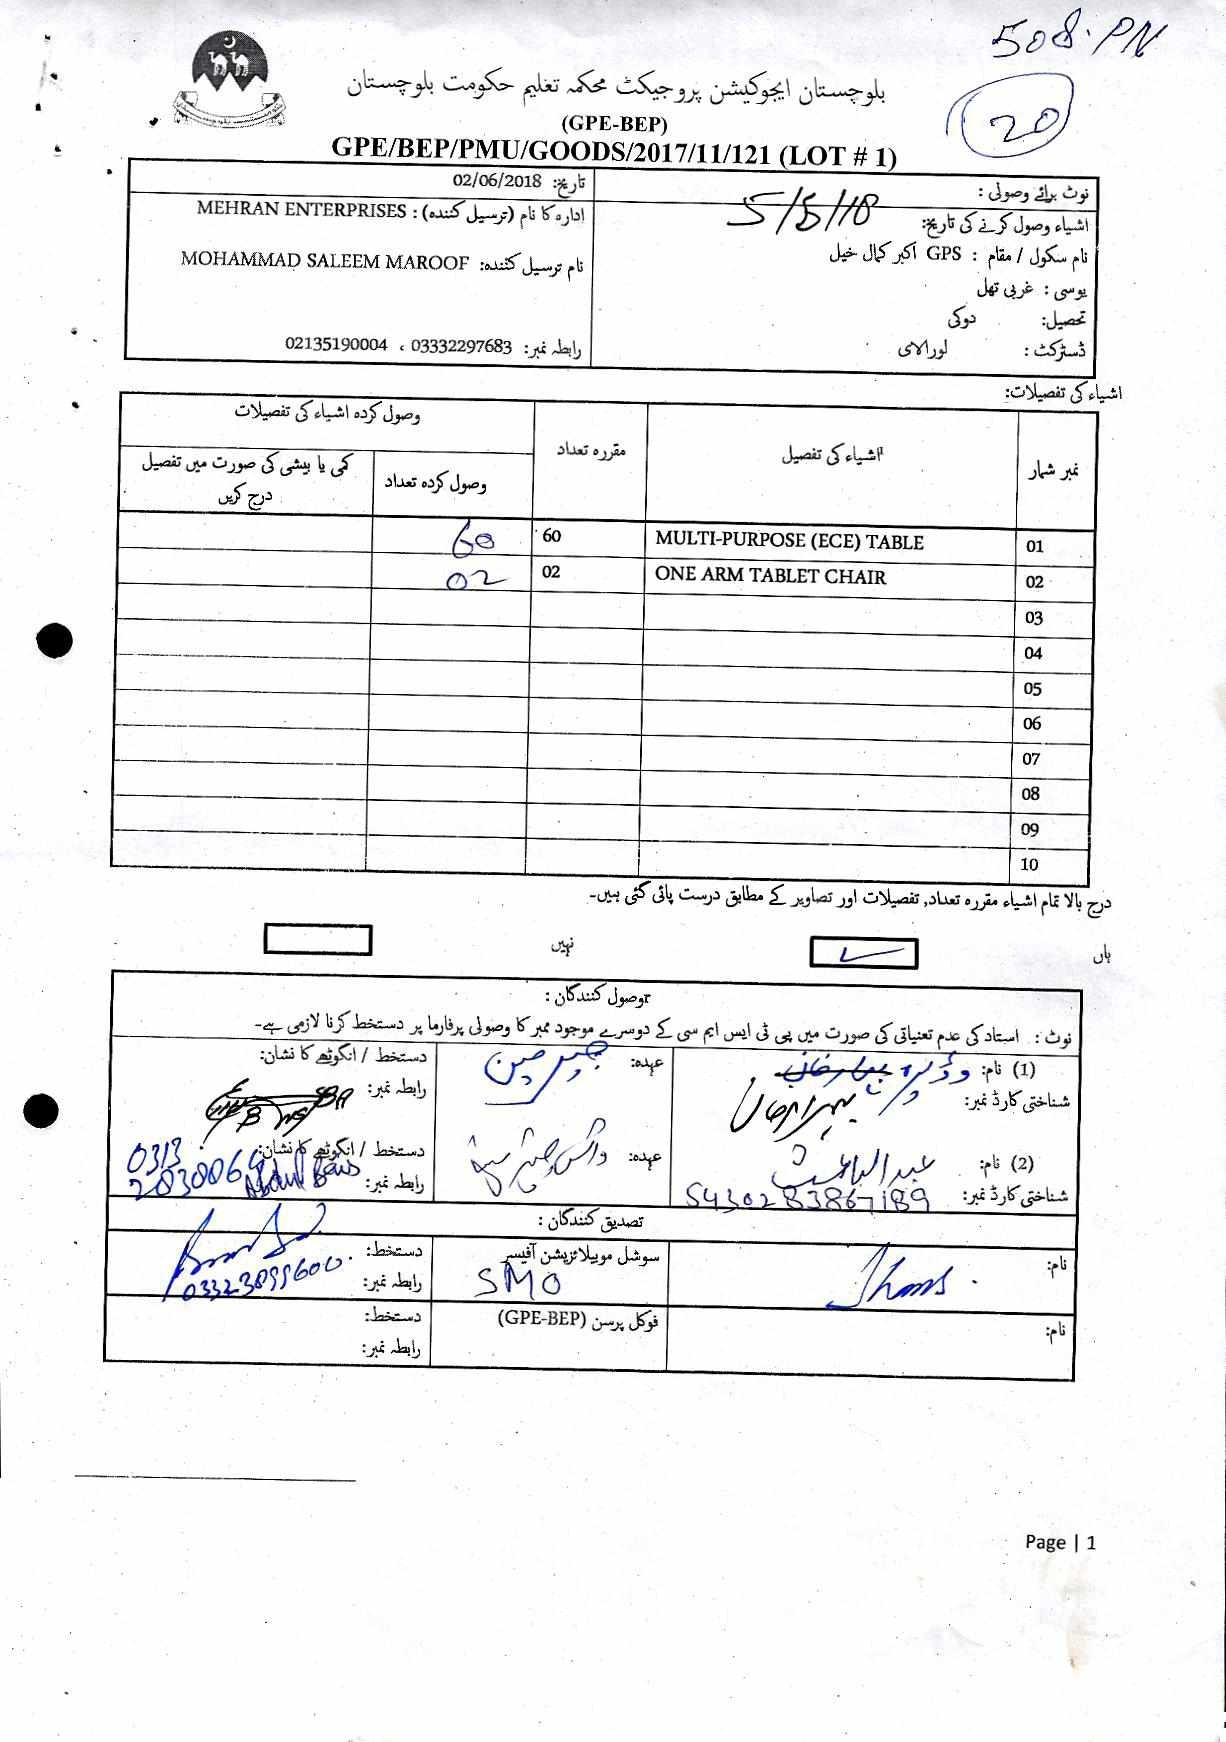 508.PN
20
بلوچستان ایجوکیشن پروجیکٹ محکمہ تعلیم حکومت بلوچستان
(GPE-BEP)
GPE/BEP/PMU/GOODS/2017/11/121 (LOT # 1)
نوٹ برائے وصولی :
اشیاء وصول کرنے کی تاریخ: 5/5/18
نام سکول / مقام : GPS اکبر کمال خیل
یوسی : غربی تھل
تحصیل: دوکی
ڈسٹرکٹ : لورالائی
تاریخ: 02/06/2018
ادارہ کا نام (ترسیل کنندہ) : MEHRAN ENTERPRISES
نام ترسیل کنندہ: MOHAMMAD SALEEM MAROOF
رابطہ نمبر: 03332297683 ، 02135190004
اشیاء کی تفصیلات:
نمبر شمار اشیاء کی تفصیل مقررہ تعداد وصول کردہ اشیاء کی تفصیلات
وصول کردہ تعداد کمی یا بیشی کی صورت میں تفصیل درج کریں
01 MULTI-PURPOSE (ECE) TABLE 60 60
02 ONE ARM TABLET CHAIR 02 02
03
04
05
06
07
08
09
10
درج بالا تمام اشیاء مقررہ تعداد, تفصیلات اور تصاویر کے مطابق درست پائی گئی ہیں۔
ہاں نہیں
وصول کنندگان :
نوٹ : استاد کی عدم تعیناتی کی صورت میں پی ٹی ایس ایم سی کے دوسرے موجود ممبر کا وصولی پرفارما پر دستخط کرنا لازمی ہے۔
(1) نام: عہدہ: چیرمین دستخط / انگوٹھے کا نشان:
شناختی کارڈ نمبر: رابطہ نمبر:
(2) نام: عبدالباعث عہدہ: دستخط / انگوٹھے کا نشان:
شناختی کارڈ نمبر: 5430283867189 رابطہ نمبر: 0313
تصدیق کنندگان :
نام: سوشل موبیلائزیشن آفیسر دستخط:
SMO رابطہ نمبر: 03323899600
نام: فوکل پرسن (GPE-BEP) دستخط:
رابطہ نمبر:
Page | 1